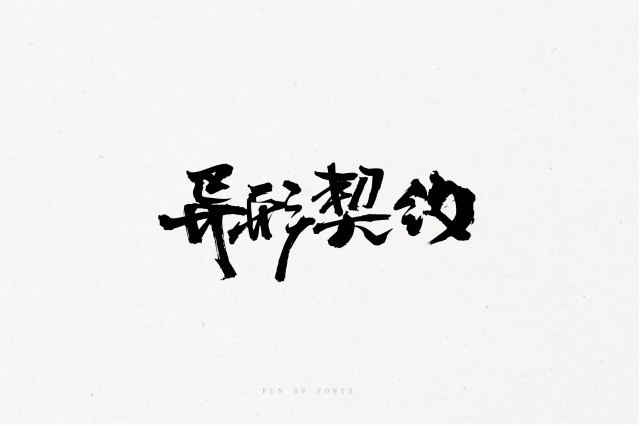 异形契约
FUN OF FONTS